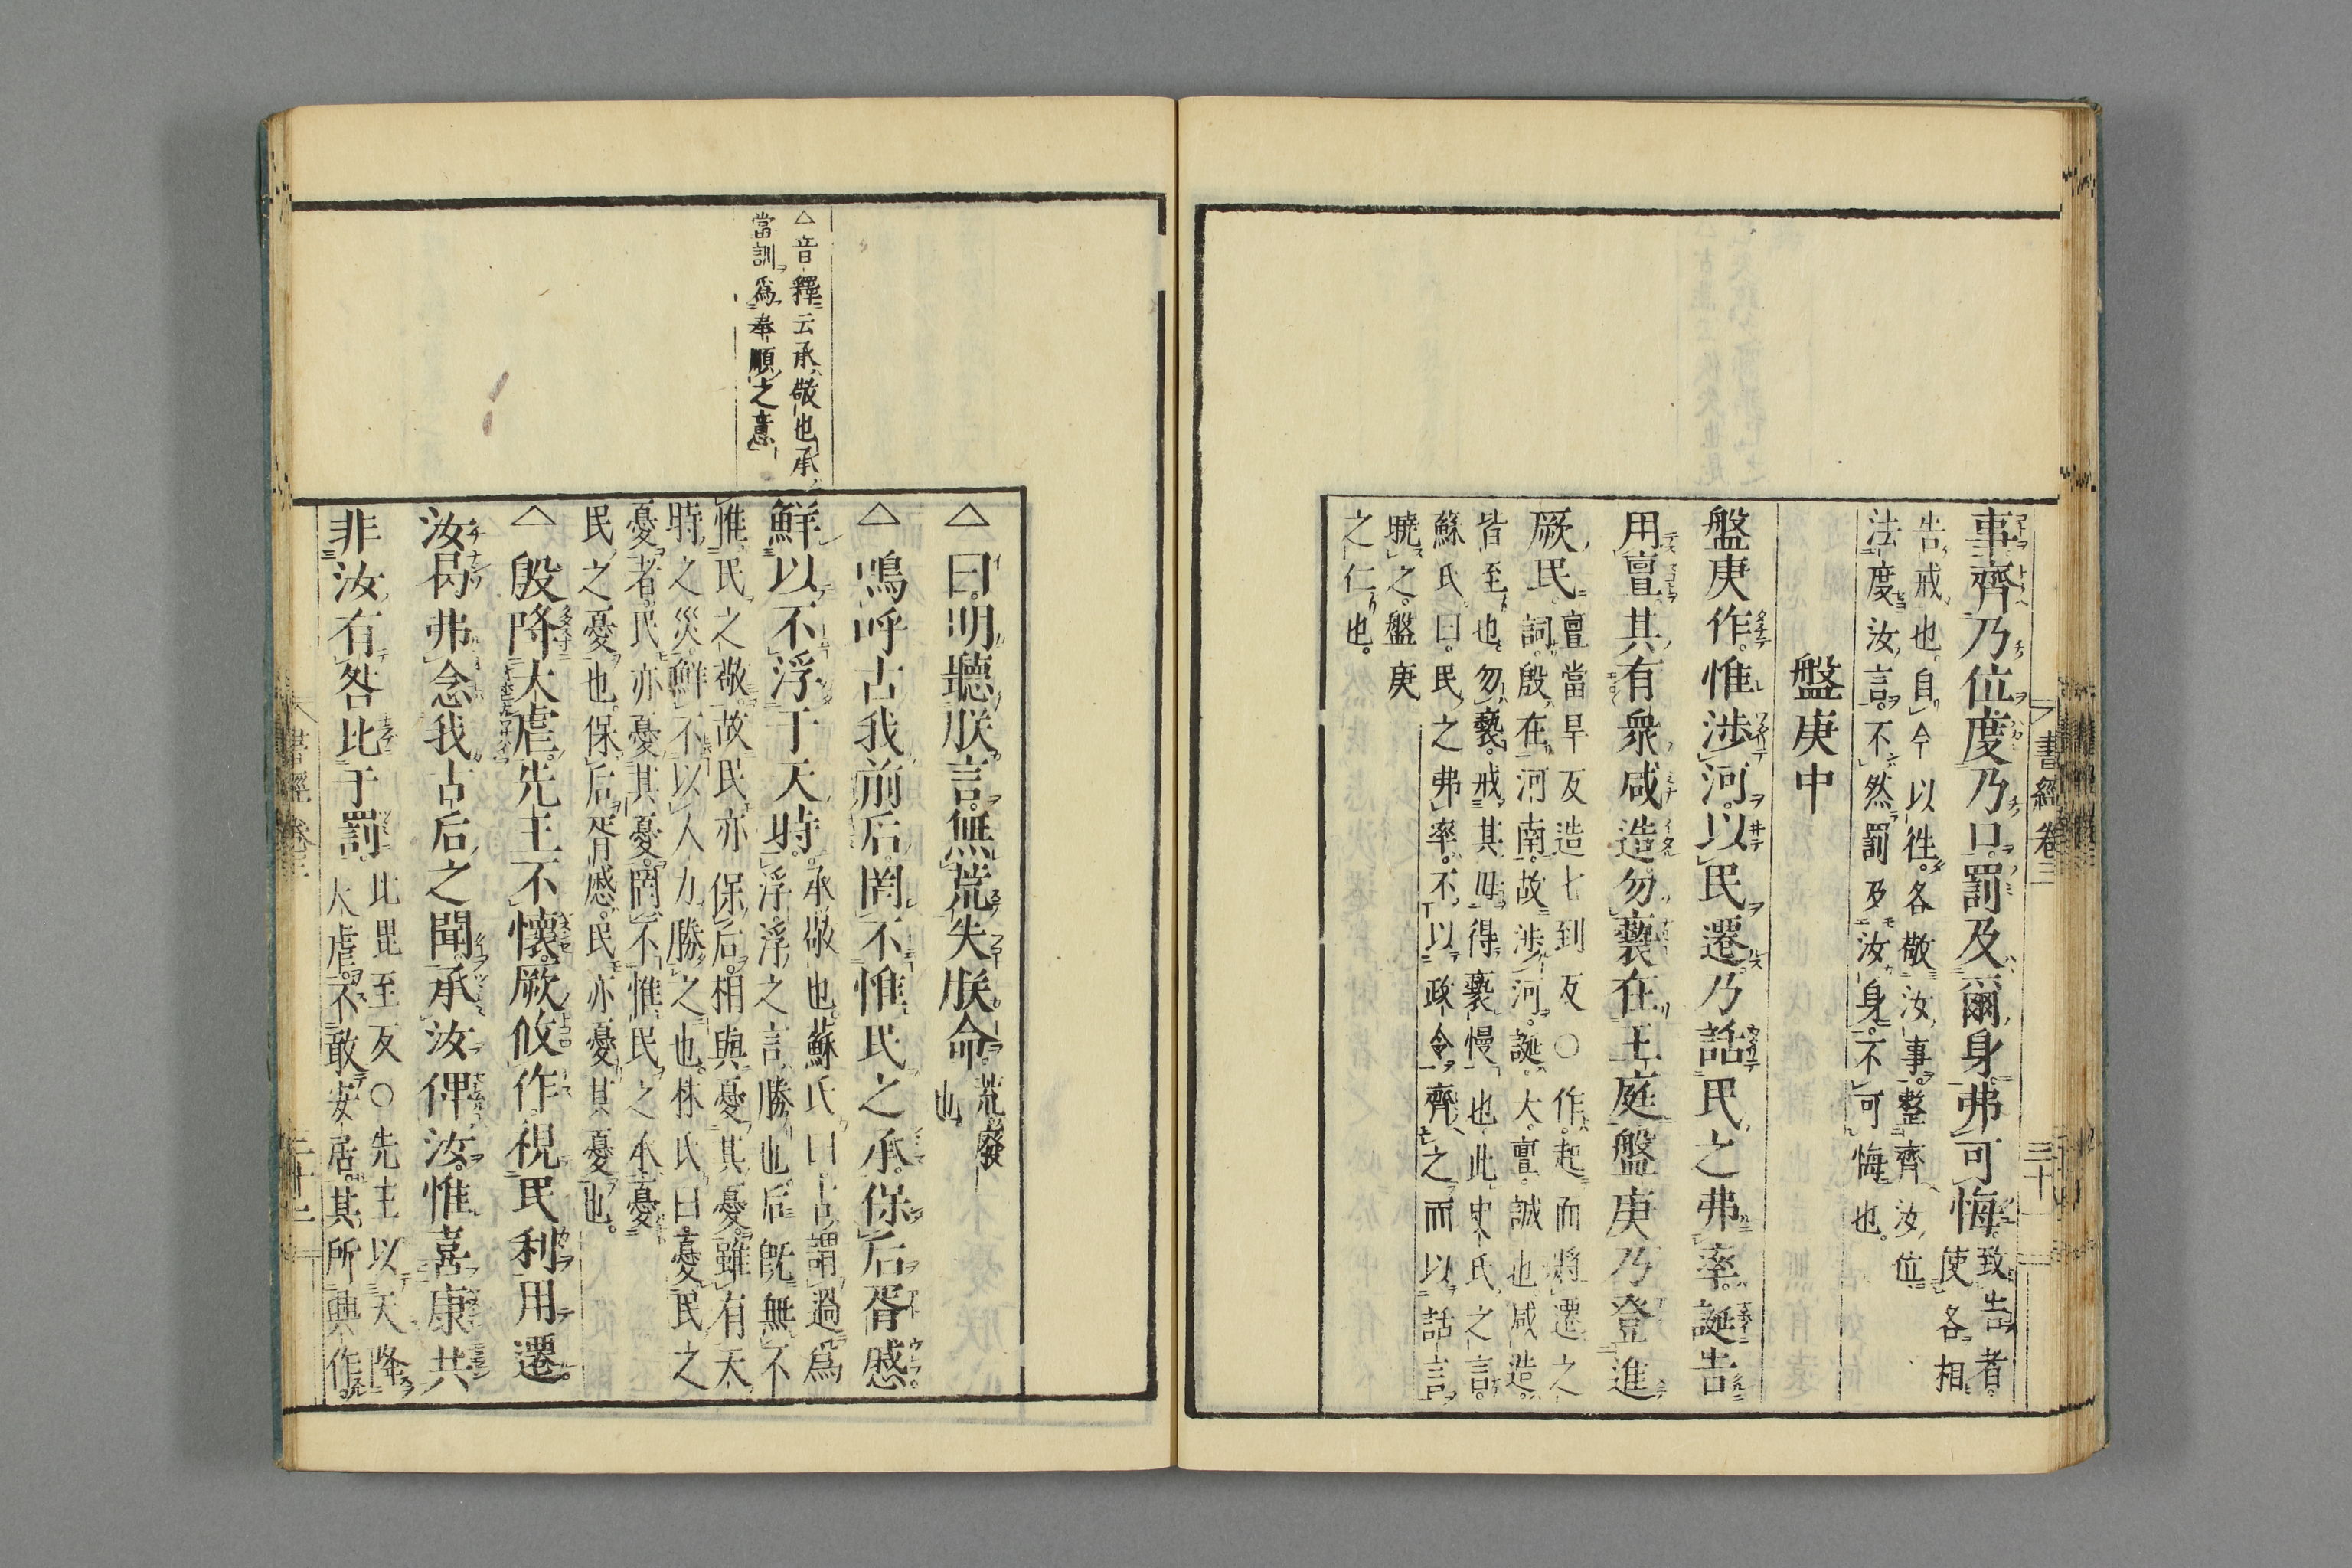 書經卷三
三十一
事齊乃位度乃口罰及爾身弗可悔致告者使各相
告戒也自今以往各敬汝事整齊汝位
法度汝言不然罰及汝身不可悔也
盤庚中
盤庚作惟涉河以民遷乃話民之弗率誕告
用亶其有衆咸造勿褻在王庭盤庚乃登進
厥民亶當旱反造七到反○作起而將遷之
詞殷在河南故涉河誕大亶誠也咸造
皆至也勿褻戒其毋得褻慢也此史氏之言
蘇氏曰民之弗率不以政令齊之而以話言
曉之盤庚
之仁也
△音釋云承敬也承
當訓爲奉順之意
△曰明聽朕言無荒失朕命荒廢也
△嗚呼古我前后罔不惟民之承保后胥慼
鮮以不浮于天時承敬也蘇氏曰古謂過爲
浮浮之言勝也后旣無不
惟民之敬故民亦保后相與憂其憂雖有天
時之災鮮不以人力勝之也林氏曰憂民之
憂者民亦憂其憂罔不惟民之承憂
民之憂也保后胥慼民亦憂其憂也
△殷降大虐先王不懷厥攸作視民利用遷
汝曷弗念我古后之聞承汝俾汝惟喜康共
非汝有咎比于罰比毘至反○先王以天降
大虐不敢安居其所興作
書經卷三